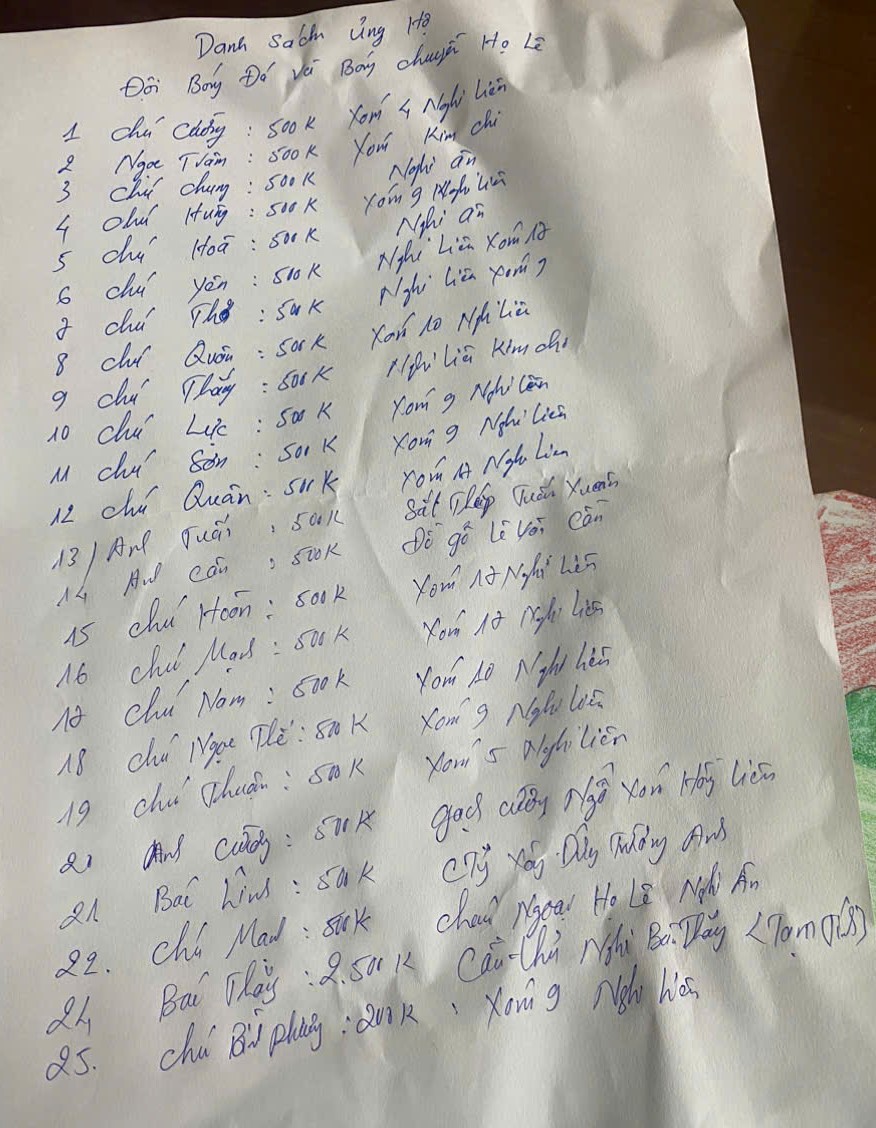 Danh sách ủng Hộ
Đội Bóng Đá và Bóng chuyền Họ Lê
1 chú Cường : 500K Xóm 4 Nghi Liên
2 Ngọc Trâm : 500K Xóm Kim chi
3 chú chung : 500K Nghi ân
4 chú Hưng : 500K Xóm 9 Nghi Liên
5 chú Hoà : 500K Nghi ân
6 chú Yên : 500K Nghi Liên Xóm 17
7 chú Thọ : 500K Nghi Liên Xóm 9
8 chú : 500K Xóm 10 Nghi Liên
9 chú Thắng : 500K Nghi Liên Kim chi
10 chú Lực : 500K Xóm 9 Nghi Liên
11 chú Sơn : 500K Xóm 9 Nghi Liên
12 chú Quân : 500K Xóm 17 Nghi Liên
13/ Anh Tuấn : 500K Sắt Thép Tuấn Xuân
14 Anh Cần : 500K Đồ gỗ Lê Văn Cần
15 chú Hoàn : 500K Xóm 17 Nghi Liên
16 chú Mạnh : 500K Xóm 17 Nghi Liên
17 chú Nam : 500K Xóm 10 Nghi Liên
18 chú Ngọc Thế : 500K Xóm 9 Nghi Liên
19 chú Thuận : 500K Xóm 5 Nghi Liên
20 Anh cường : 500K gạch cường Ngô Xóm Liên
21 Bác Lĩnh : 500K CTy Xây Dựng Trường Anh
22. chú : 500K cháu Ngoại Họ Lê Nghi Ân
24 Bác Thắng : 2.500K Cần-Thủ Nghi Bá Thắng <Tạm Tính>
25. chú Phương : 200K , Xóm 9 Nghi Liên